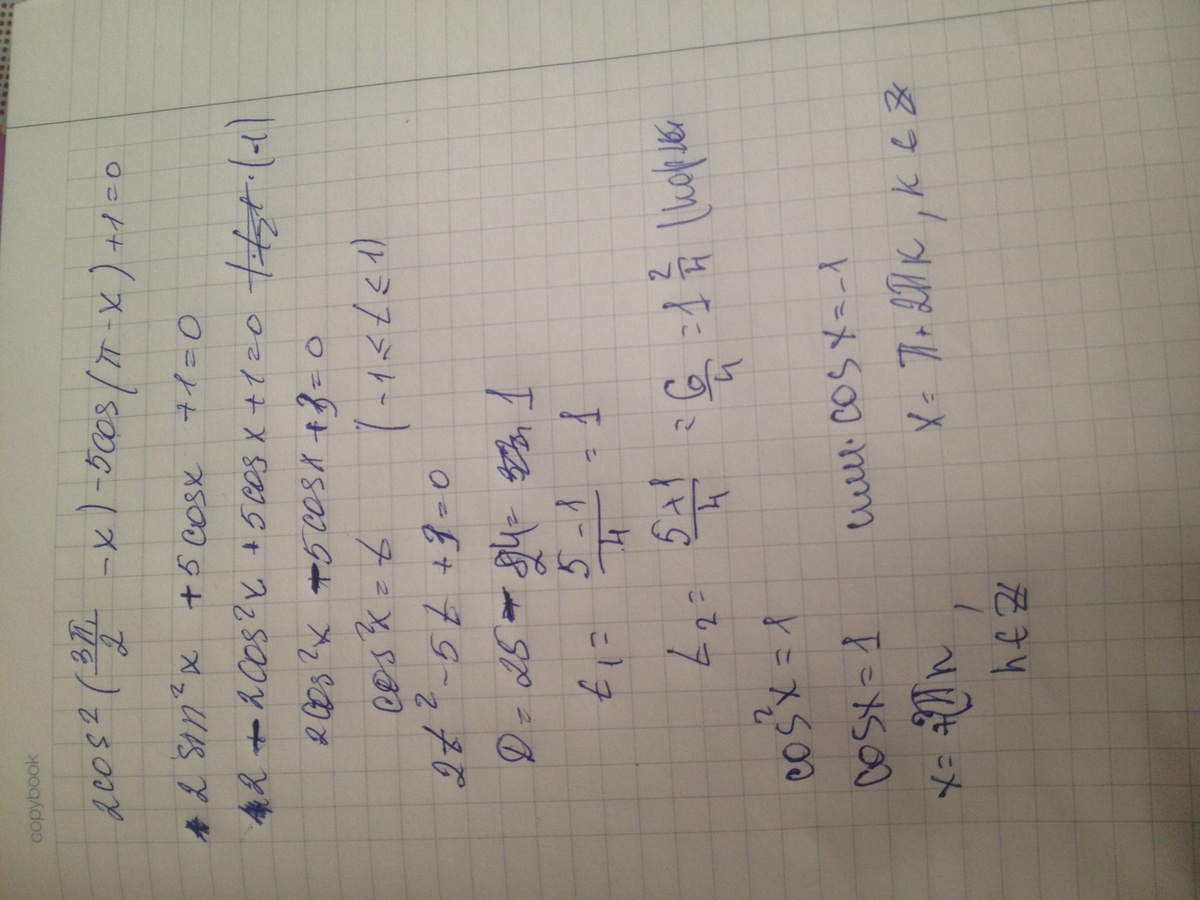 copybook
2cos²(3π/2 - x) - 5cos(π - x) + 1 = 0
2 sin²x + 5cosx + 1 = 0
2 - 2cos²x + 5cosx + 1 = 0 | · (-1)
2cos²x - 5cosx + 3 = 0
cos²x = t (-1 ≤ t ≤ 1)
2t² - 5t + 3 = 0
D = 25 - 24 = 1
t₁ = (5 - 1)/4 = 1
t₂ = (5 + 1)/4 = 6/4 = 1 2/4
cos²x = 1
cosx = 1 или cosx = -1
x = 2πn, x = π + 2πk, k ∈ Z
n ∈ Z